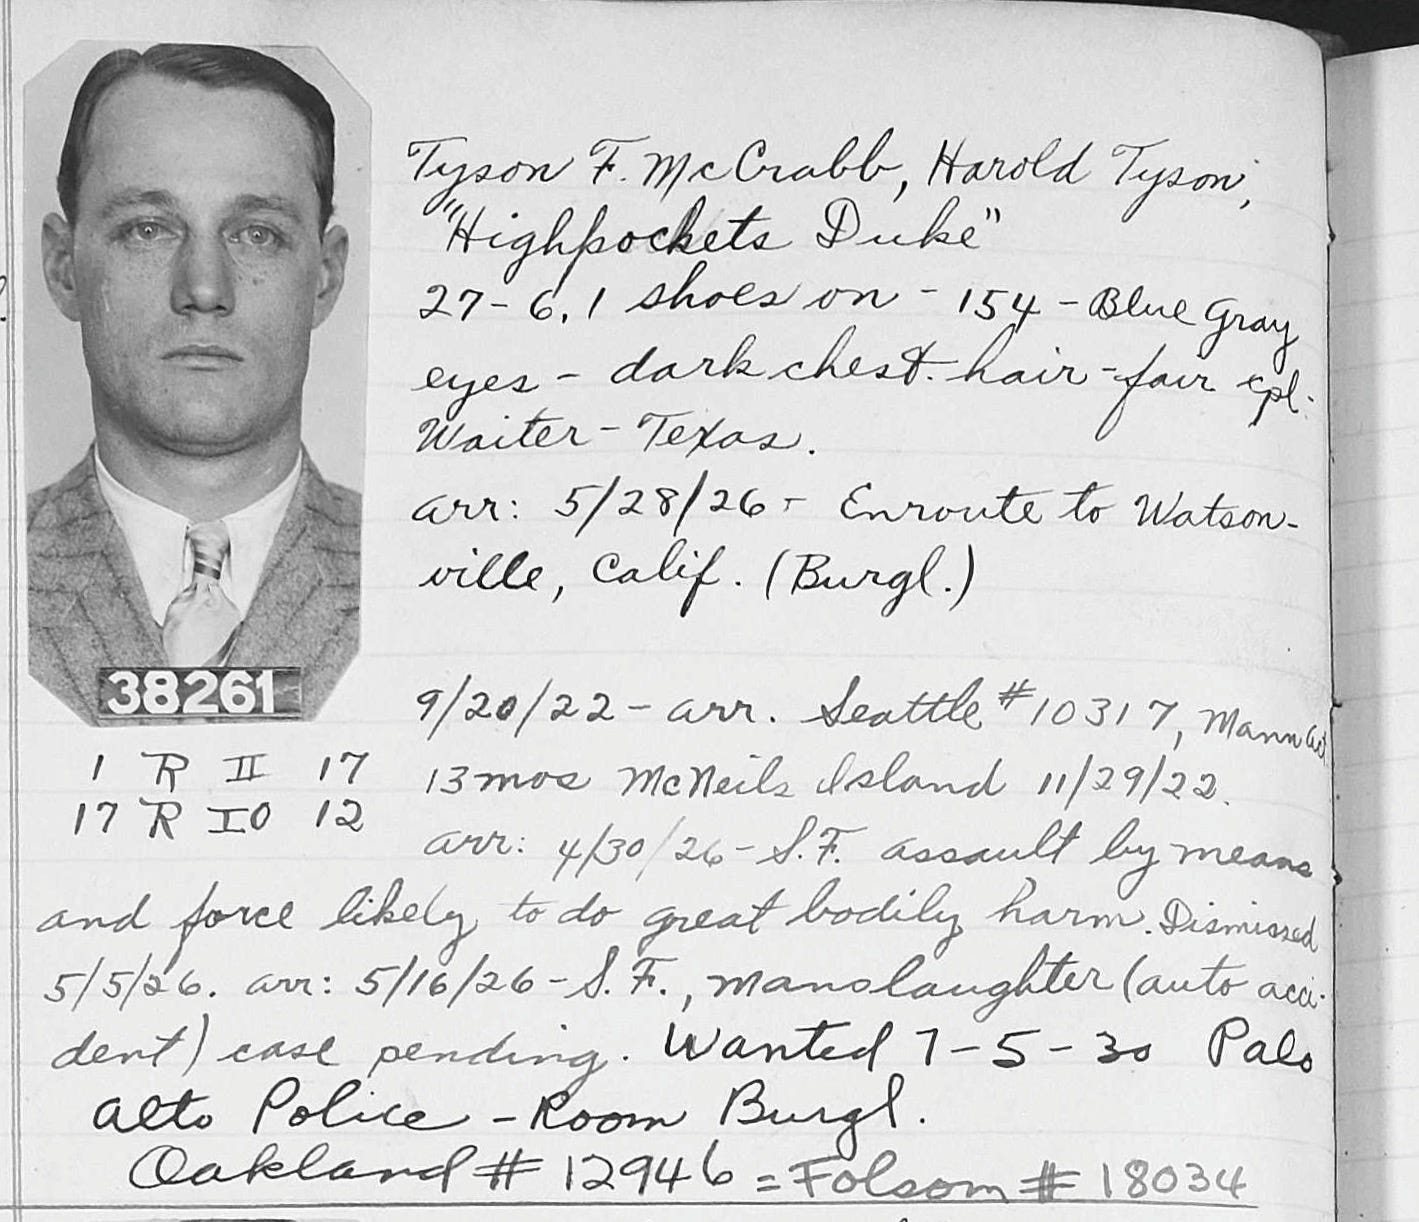 Tyson F. McCrabb, Harold Tyson,
"Highpockets Duke"
27-6.1 shoes on - 154 - Blue Gray
eyes - dark chest. hair - fair cpl.
Waiter - Texas.
arr: 5/28/26 - Enroute to Watson-
ville, Calif. (Burgl.)
38261
9/20/22 - arr. Seattle #10317, Mann Act.
1 R II 17
13 mos McNeils Island 11/29/22.
17 R IO 12
arr: 4/30/26 - S.F. assault by means
and force likely to do great bodily harm. Dismissed
5/5/26. arr: 5/16/26 - S.F., manslaughter (auto acci-
dent) case pending. Wanted 7-5-30 Palo
Alto Police - Room Burgl.
Oakland # 12946 = Folsom # 18034